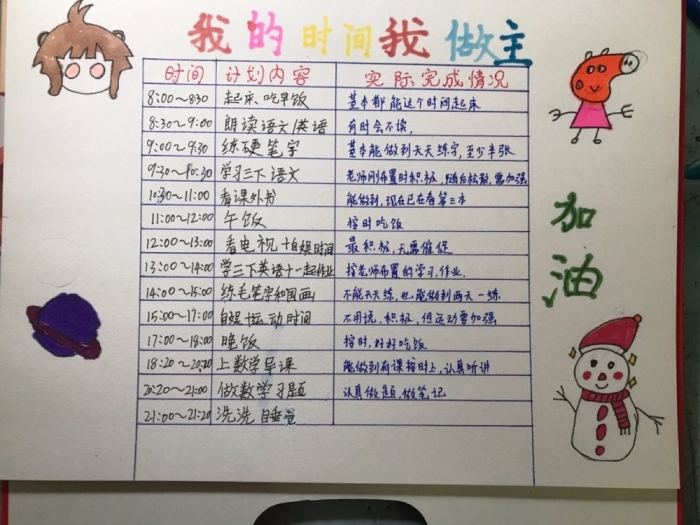 我的时间我做主
时间 计划内容 实际完成情况
8:00～8:30 起床、吃早饭 基本都能这个时间起床
8:30～9:00 朗读语文/英语 有时会不读,
9:00～9:30 练硬笔字 基本能做到天天练字,至少半张
9:30～10:30 学习三下语文 老师刚布置时积极,随后松散,需加强
10:30～11:00 看课外书 能做到,现在已在看第三本
11:00～12:00 午饭 按时吃饭
12:00～13:00 看电视+自娱时间 最积极,无需催促
13:00～14:00 学三下英语+一起作业 按老师布置的学习,作业.
14:00～15:00 练毛笔字和国画 不能天天练,也能做到两天一练
15:00～17:00 自娱+运动时间 不用说,积极,但运动要加强
17:00～18:00 晚饭 按时,好好吃饭
18:20～20:20 上数学导课 能做到有课按时上,认真听讲
20:20～21:00 做数学习题 认真做题,做笔记
21:00～21:20 洗洗自睡觉
加油